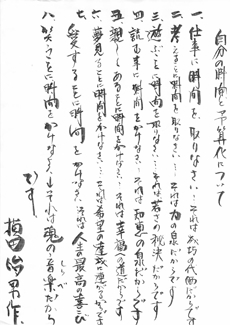 自分の時間と予算化について
一、仕事に時間を取りなさい…それは成功の代価だからです
二、考えることに時間を取りなさい…それは力の泉だからです
三、遊ぶことに時間を取りなさい…それは若さの秘訣だからです
四、読む事に時間をかけなさい それは知恵の泉だからです
五、親しくあるために時間をかけなさい それは幸福への道だからです
六、夢見ることに時間をかけなさい それは希望の達成に通ずるからです
七、愛するために時間をかけなさい それは人生の最高の喜び
八、笑うことに時間をかけなさい それは魂の音楽だから
です
作